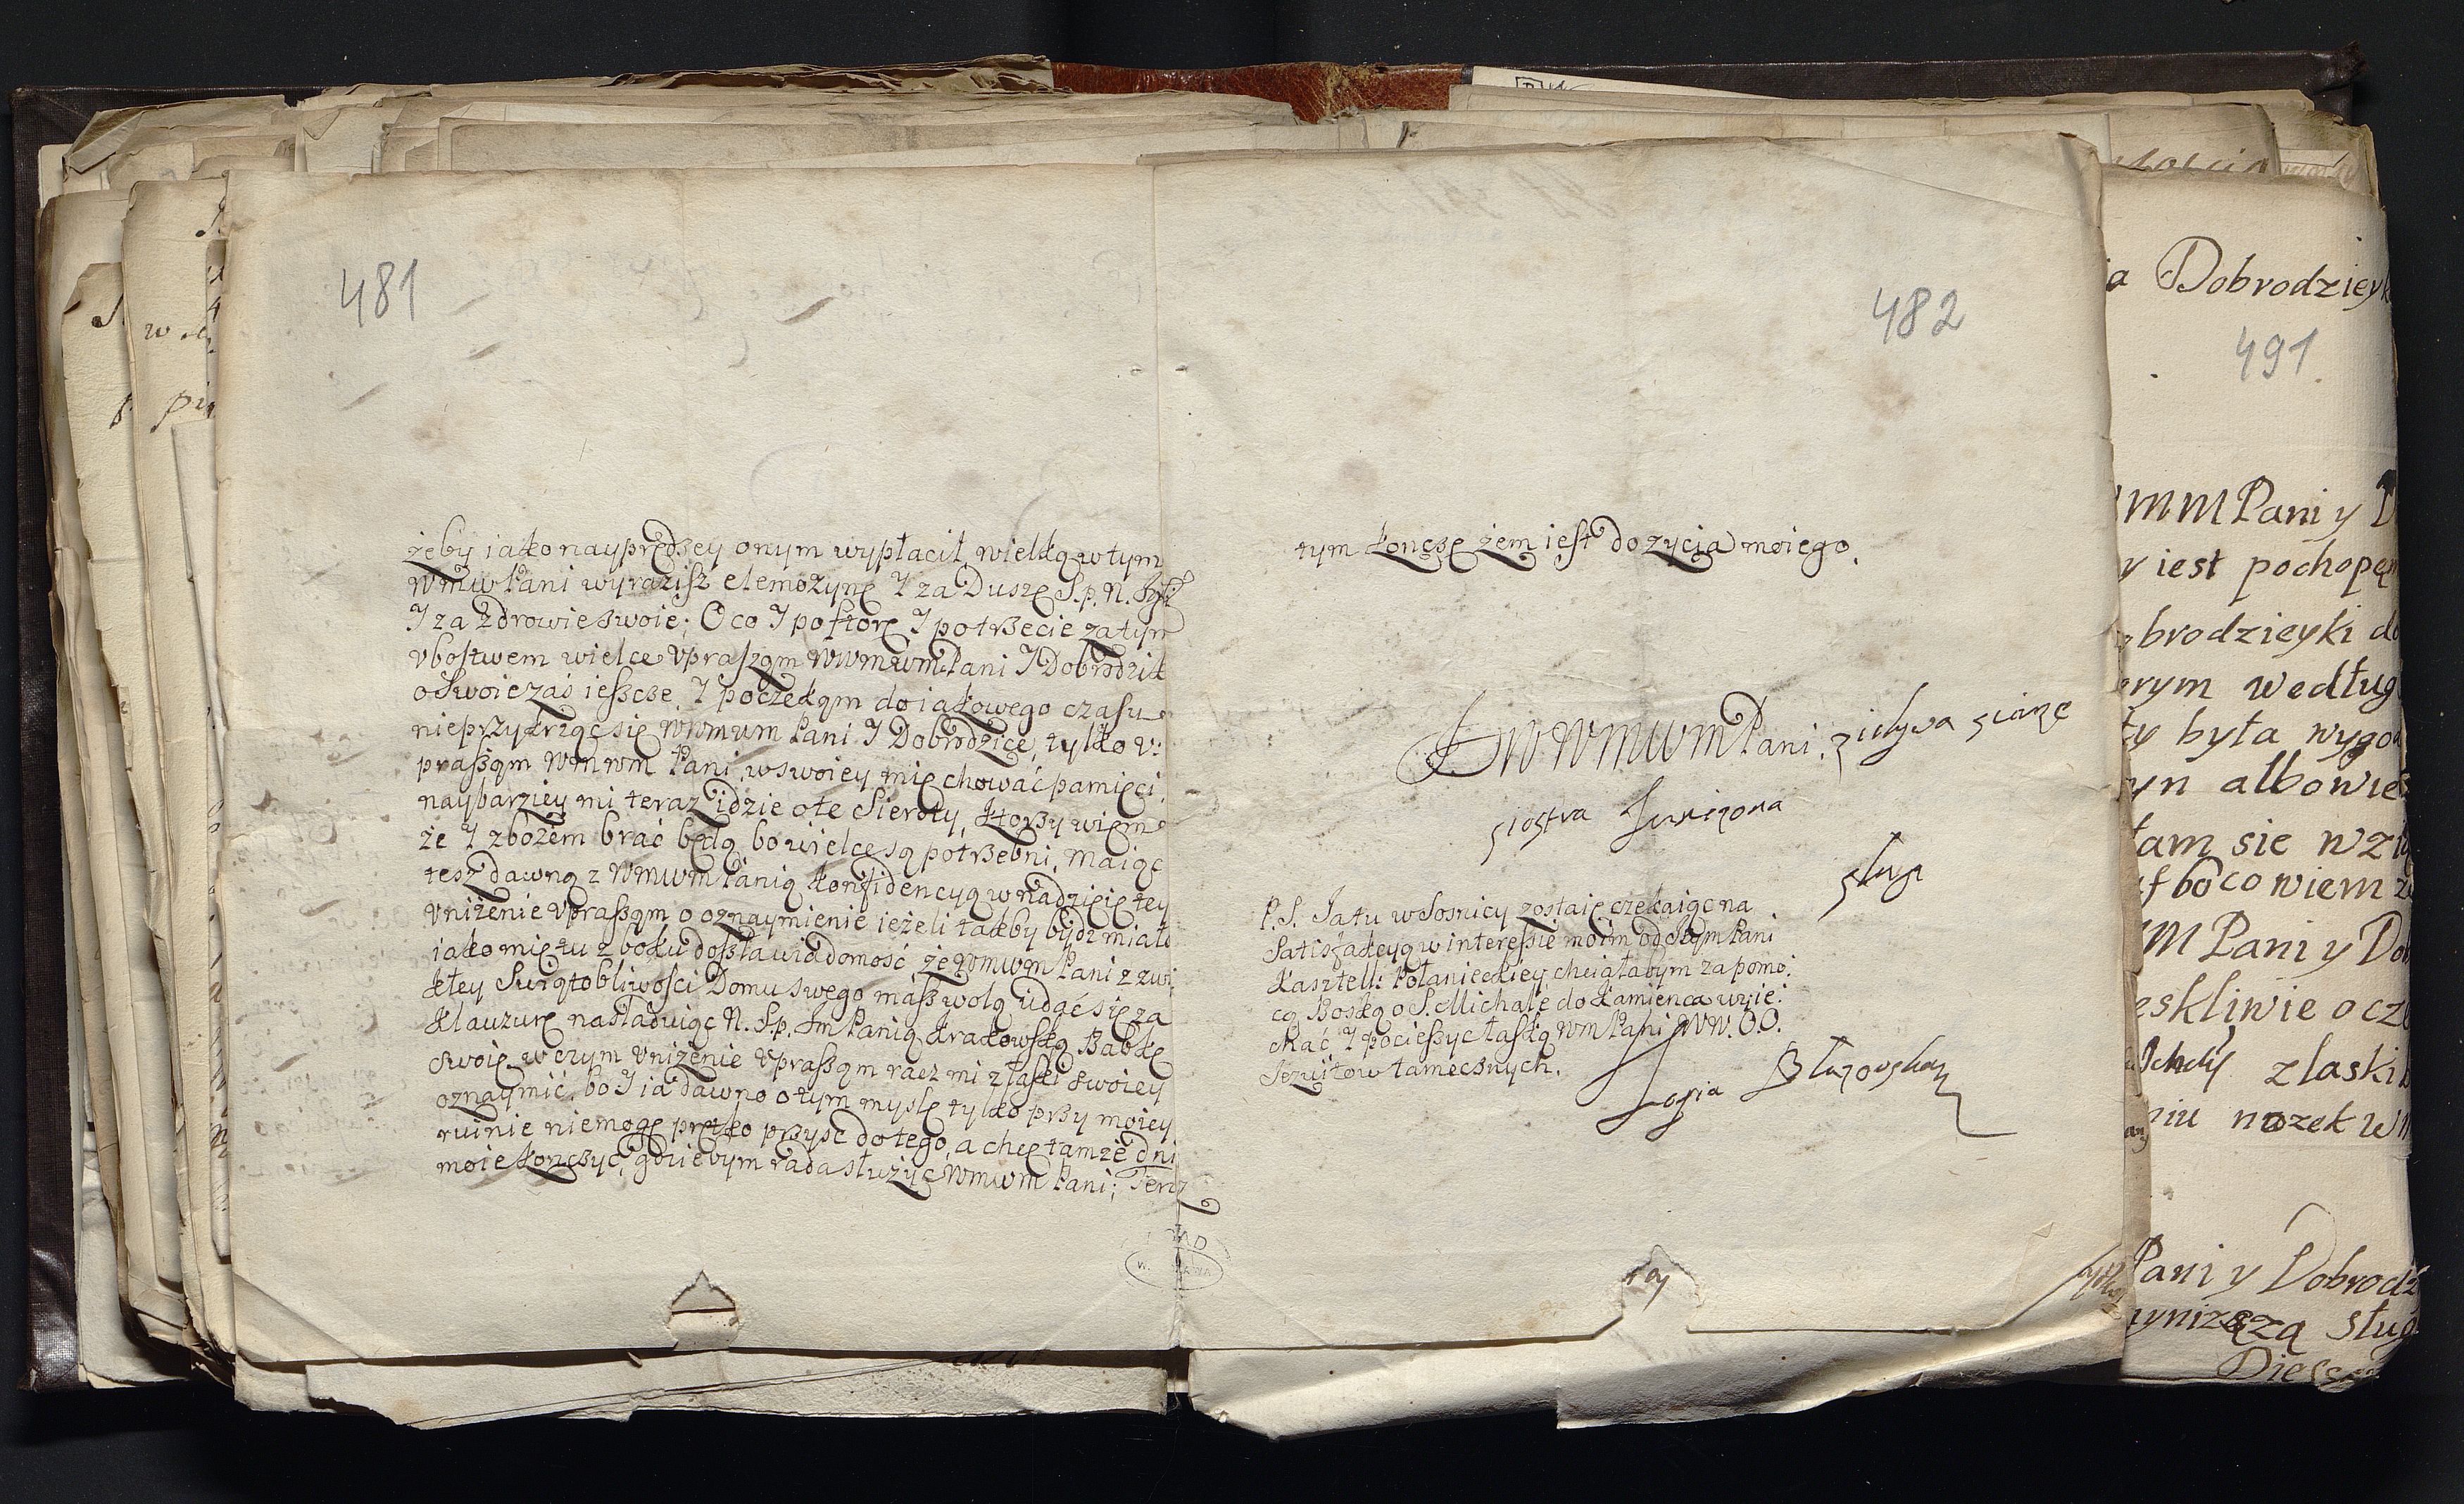 481
żeby iako nayprędzey onym wypłacił, wielką w tym
WMWPani wyrazisz elemozynę Y za Duszę S.p. N.
Y za zdrowie swoie; O co Y poftorę Y potrzecie za tym
vbostwem wielce vprasząm WWMWMPani Y Dobrodzik
o swoie zaś ieszcze Y poczekąm do iakowego czasu
nieprzykrząc się WWMWM Pani Y Dobrodzice, tylko v:
prasząm WMWM Pani, w swoiey mię chować pamięci,
naybarziey mi teraz idzie o te Sieroty, ktorzy wiem
że Y zbożem brać będą bo wielce są potrzebni, maiąc
tesz dawną z WMWM Panią konfidencyą w nadzieię tey
vniżenie vprasząm o oznaymienie ieżeli takby bydz miało
iako mię tu z boku doszła wiadomość że WMWM Pani z zwy
kłey Swiątobliwości Domu swego masz wolą udać się za
klauzurę nasladuiąc N. S.p. Jm Panią Krakowską Babkę
swoię w czym vniżenie vprasząm racz mi z łaski swoiey
oznaymić, bo Y ia dawno o tym myslę tylko przy moiey
ruinie niemogę prętko przyść do tego, a chcę tamże dni
moie kończyć, gdzie bym rada służyć WMWM Pani; Teraz
482
tym kończę żem iest do zycia moiego.
WWMWMPani
siostra
sługa
P.S. Ja tu w Sosnicy zostaię czekaiąc na
Satisfakcyą w interessie moim od Jeym Pani
Kasztell: Połanieckiey, chciałabym za pomo:
cą Boską o S. Michale do Kamienca wyie:
chać Y pocieszyć łaską WM Pani WW. O.O.
Jezuitow tamecznych.
Zofia
a Dobrodzieyk
491
MM Pani y D
y iest pochopęn
brodzieyki do
rym według
ty była wygod
yn albowie
tam sie wzi
bo co wiem
M Pani y Do
eskliwie o cze
z laski
niu nozek WM
Pani y Dobrodz
ynizszą sług